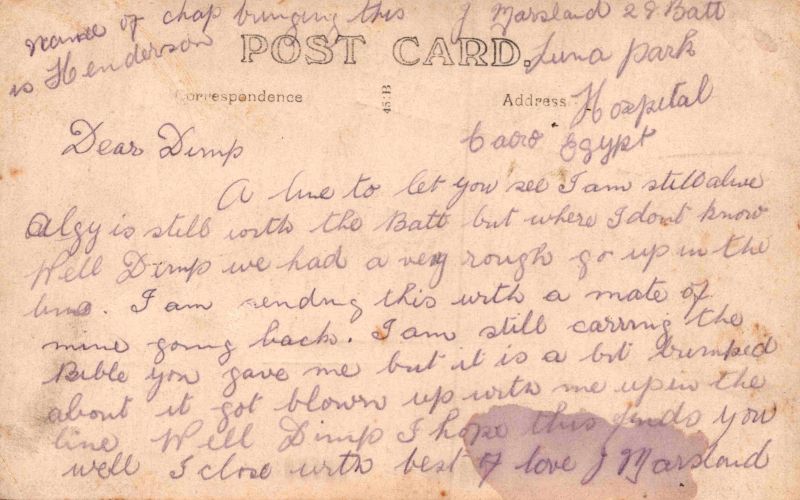 name of chap bringing this
is Henderson
J Marsland 28 Batt
POST CARD.
Luna Park
Correspondence
45:B
Address
Hospital
Cairo Egypt
Dear Dimp
A line to let you see I am still alive
Algy is still with the Batt but where I dont know
Well Dimp we had a very rough go up in the
line. I am sending this with a mate of
mine going back. I am still carring the
Bible you gave me but it is a bit bumped
about it got blown up with me up in the
line Well Dimp I hope this finds you
well I close with best of love J Marsland